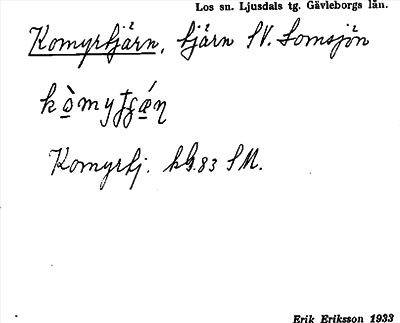 Los sn. Ljusdals tg. Gävleborgs län.
Komyrtjärn, tjärn SV. Lomsjön
Komyrtj. kb.83 SM.
Erik Eriksson 1933